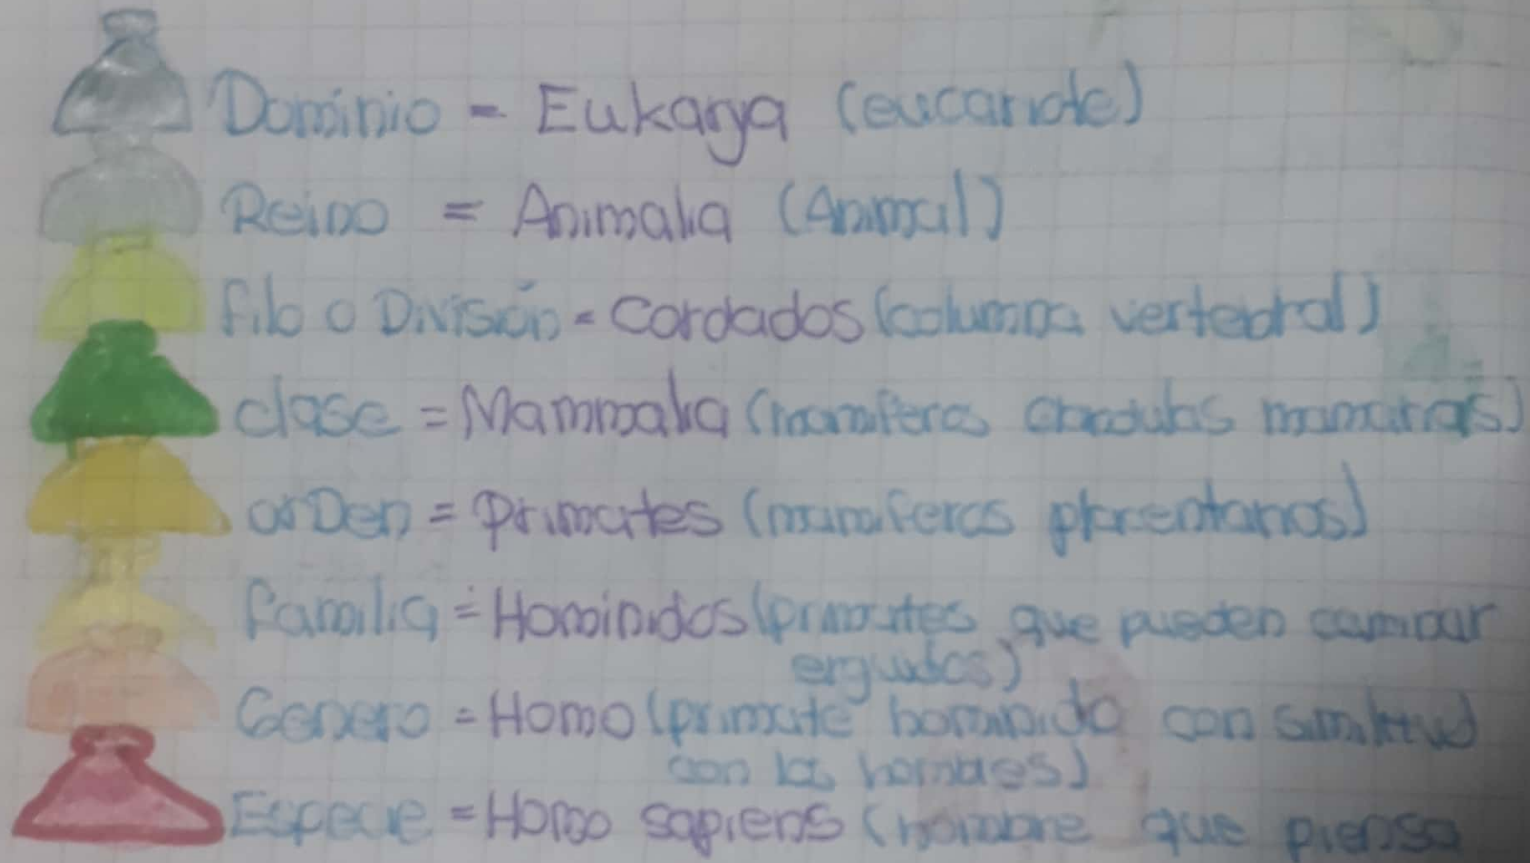 Dominio - Eukarya (eucariote)
Reino = Animalia (Animal)
filo o División = Cordados (columna vertebral)
clase = Mammalia (mamiferos glandulas mamarias)
orDen = Primates (mamiferos placentarios)
familia = Hominidos (primates que pueden caminar
erguidos)
Genero = Homo (primate hominido con similitud
con los hombres)
Especie = Homo sapiens (hombre que piensa